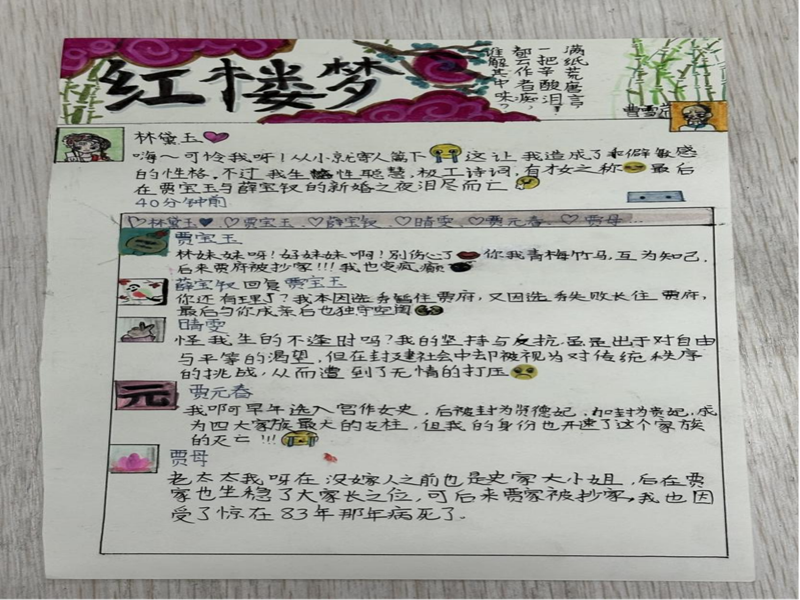 红楼梦
满纸荒唐言
一把辛酸泪！
都云作者痴，
谁解其中味？
曹雪芹
林黛玉
嗨～可怜我呀！从小就寄人篱下这让我造成了孤僻敏感
的性格。不过我生性聪慧，极工诗词，有才女之称最后
在贾宝玉与薛宝钗的新婚之夜泪尽而亡
40分钟前
♡林黛玉♥ ♡贾宝玉 ♡薛宝钗 ♡晴雯 ♡贾元春 ♡贾母...
贾宝玉
林妹妹呀！好妹妹啊！别伤心了你我青梅竹马，互为知己，
后来贾府被抄家!!!我也变疯癫
薛宝钗回复贾宝玉
你还有理了？我本因选秀暂住贾府，又因选秀失败长住贾府，
最后与你成亲后也独守空闺
晴雯
怪我生的不逢时吗？我的坚持与反抗虽是出于对自由
与平等的渴望，但在封建社会中却被视为对传统秩序
的挑战，从而遭到了无情的打压
元
贾元春
我啊可早年选入宫作女史，后被封为贤德妃，加封为贵妃，成
为四大家族最大的支柱，但我的身份也开速了这个家族
的灭亡!!!
贾母
老太太我呀在没嫁人之前也是史家大小姐，后在贾
家也坐稳了大家长之位，可后来贾家被抄家，我也因
受了惊在83年那年病死了.